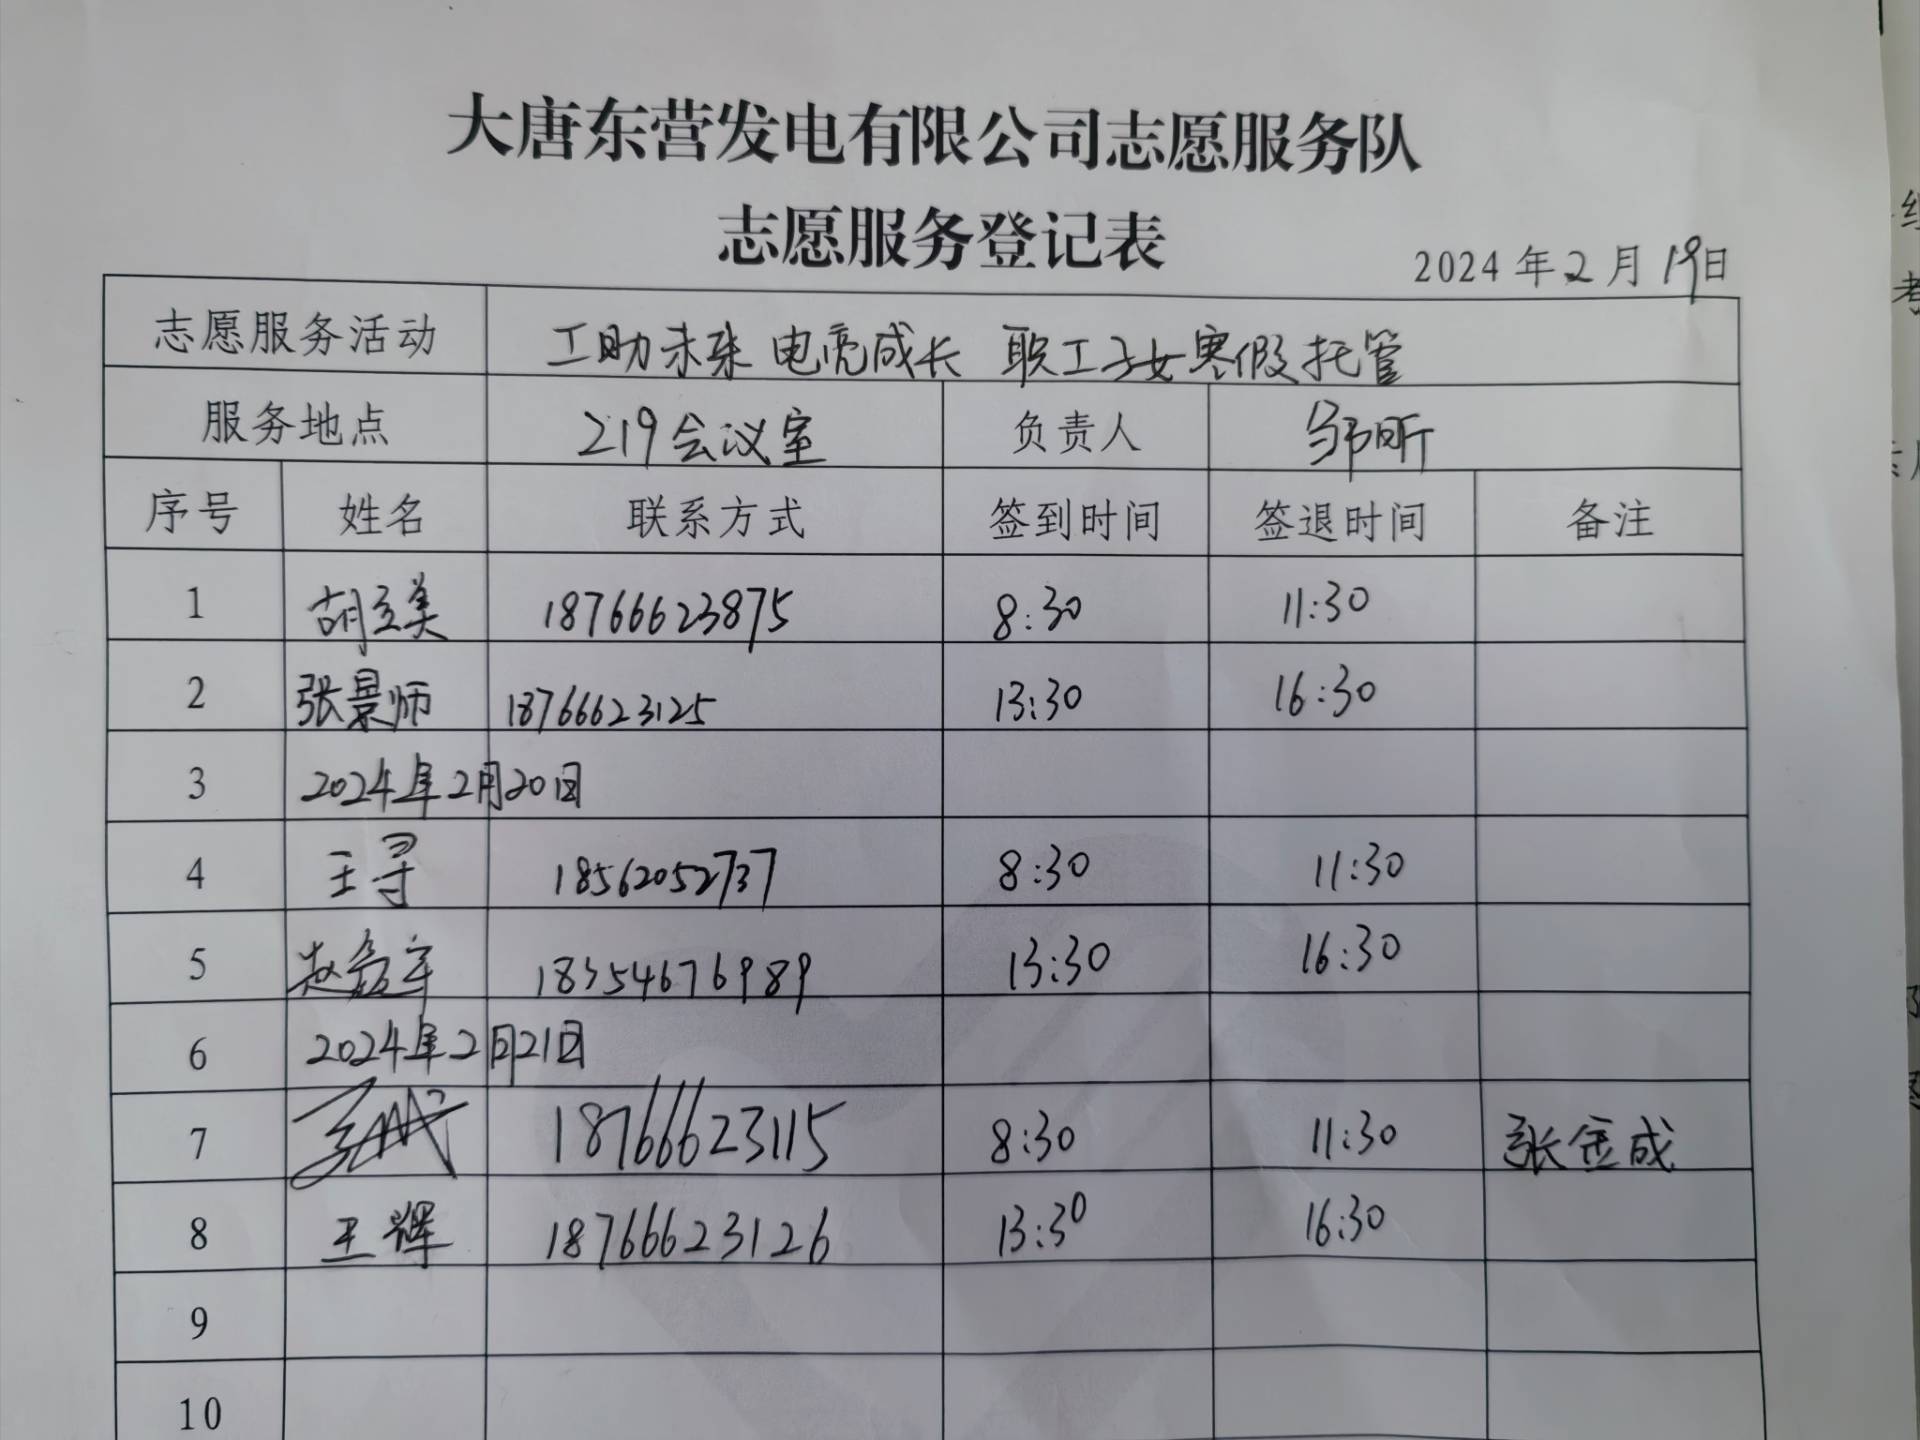 大唐东营发电有限公司志愿服务队
志愿服务登记表
2024年2月19日
志愿服务活动 工助未来 电亮成长 职工子女寒假托管
服务地点 219会议室 负责人 邹昕
序号 姓名 联系方式 签到时间 签退时间 备注
1 胡立美 18766623875 8:30 11:30
2 张景师 18766623125 13:30 16:30
3 2024年2月20日
4 王寻 18562052737 8:30 11:30
5 赵 18354676989 13:30 16:30
6 2024年2月21日
7 18766623115 8:30 11:30 张金成
8 王辉 18766623126 13:30 16:30
9
10